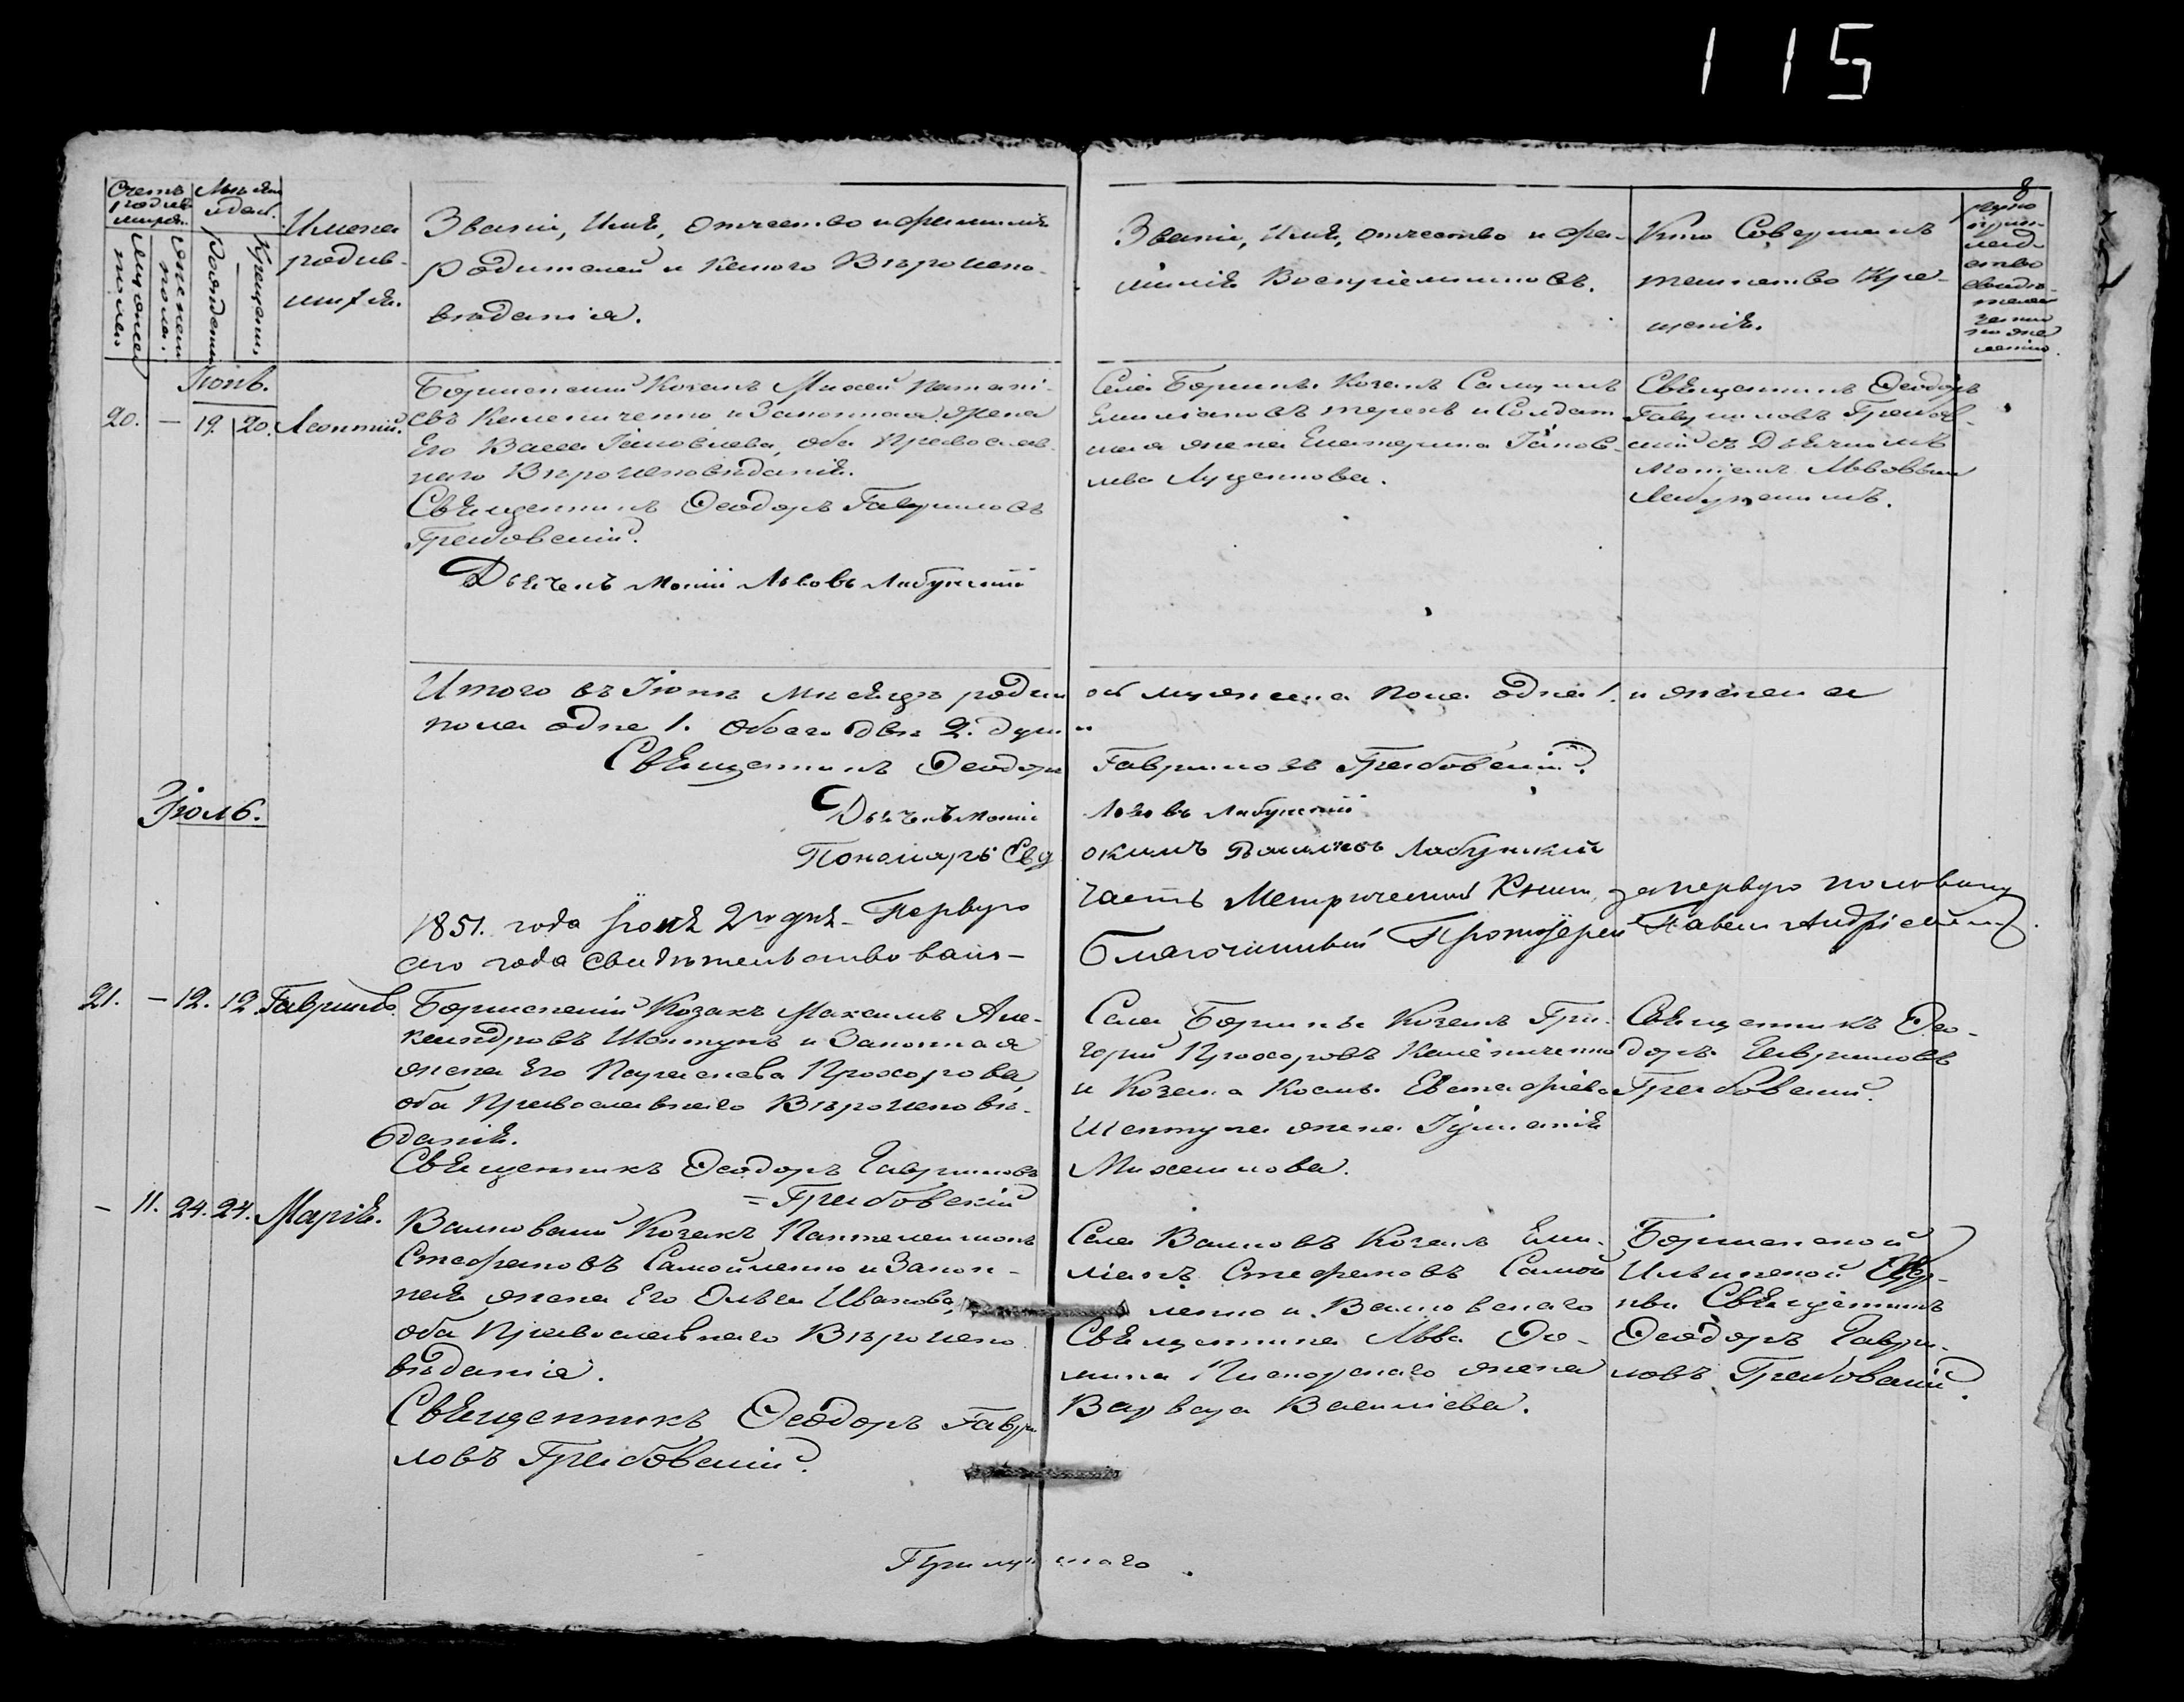 115
8
Счетъ родив-
шихся.
Мужеска
пола
Женска
пола.
Мѣсяцъ
и день.
Рожденія
Крещенія
Имена
родив-
шихся.
Званіе, Имя, отчество и фамилія
Родителей и какого Вѣроиспо-
вѣданія.
Званіе, Имя, отчество и фа-
милія Воспріемниковъ.
Кто Совершалъ
таинство Кре-
щенія.
Іюнь.
20. — 19. 20. Леонтій.
Боршенскій Козакъ
евъ Калениченко и Законная жена
Его Васса Іаковлева, оба Православ-
наго Вѣроисповѣданія.
Священникъ Ѳеодоръ Гавриловъ
Грабовскій.
Дьячекъ Львовъ Лабунскій
Села Боршны Козакъ Самуилъ
Емиліановъ и Солдат
ская жена Екатерина Іаков-
лева Луценкова.
Священникъ Ѳеодоръ
Гавриловъ Грабов-
скій съ Дьячкомъ
Львовымъ
Лабунскимъ.
Итого въ Іюнѣ Мѣсяцѣ родилось мужеска пола одна 1. и женска
пола одна 1. обоего двѣ 2. души
Священникъ Ѳеодоръ Гавриловъ Грабовскій.
Дьячекъ Львовъ Лабунскій
Пономарь Евдокимъ Лабунскій
Іюль.
1851. года Іюля 2го дня Первую часть Метрической Книги за первую половину
сего года свидѣтельствовалъ — Благочинный Протоіерей Павелъ
21. — 12. 12. Гавріилъ.
Боршенскій Козакъ Максимъ Але-
ксандровъ Шаптунъ и Законная
жена Его Параскева Прохорова,
оба Православнаго Вѣроисповѣ-
данія.
Священникъ Ѳеодоръ Гавриловъ
= Грабовскій
Села Боршны Козакъ Гри-
горій Прохоровъ Калениченко
и Козака Космы Евстафіева
Шаптуна жена Іуліанія
Михайлова.
Священникъ Ѳео-
доръ Гавриловъ
Грабовскій.
— 11. 24. 24. Марія.
Валковскій Козакъ Пантелеимонъ
Стефановъ Самойленко и Закон-
ная жена Его Ольга Иванова,
оба Православнаго Вѣроиспо-
вѣданія.
Священникъ Ѳеодоръ Гаври
ловъ Грабовскій.
Села Валковъ Козакъ Еми-
ліанъ Стефановъ Самой
ленко и Валковскаго
Священника Льва Ѳо-
мина жена
Варвара Васильева.
Боршенской
Ильинской Цер-
кви Священникъ
Ѳеодоръ Гаври-
ловъ Грабовскій.